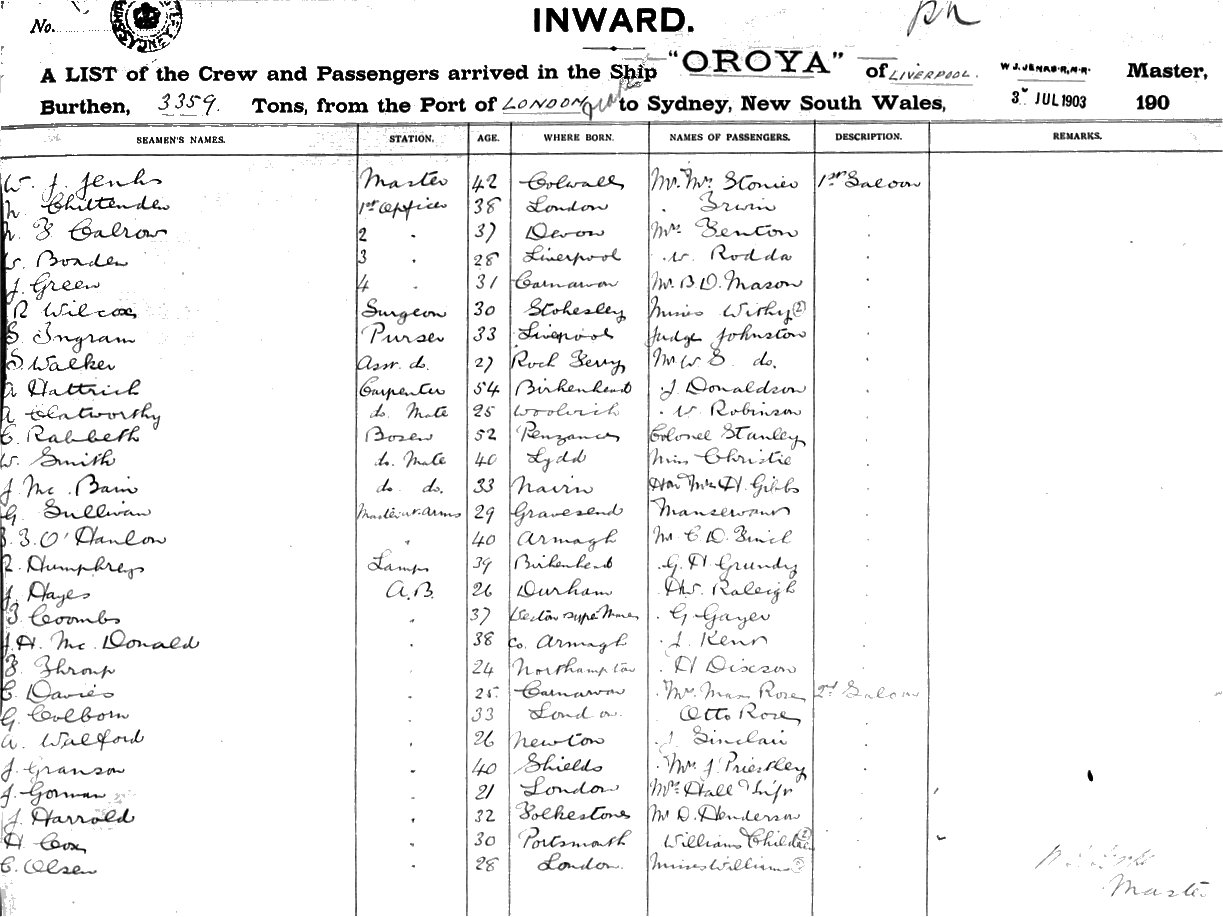 No.
SYDNEY
INWARD.
A LIST of the Crew and Passengers arrived in the Ship "OROYA" of LIVERPOOL. W. J. JENKS. R.N.R. Master,
Burthen, 3359. Tons, from the Port of LONDON to Sydney, New South Wales, 3 JUL 1903 190
SEAMEN'S NAMES. STATION. AGE. WHERE BORN. NAMES OF PASSENGERS. DESCRIPTION. REMARKS.
W. J. Jenks Master 42 Colwall Mr. Mrs Stonier 1st Saloon
Chittenden 1st Officer 38 London . Irwin .
F Calrow 2 . 37 Devon Mrs Fenton .
W. Boaden 3 . 28 Liverpool . W. Rodda .
J. Green 4 . 31 Carnarvon Mr. B. D. Mason .
R Wilcox Surgeon 30 Stokesley Misses Withy (2) .
S. Ingram Purser 33 Liverpool Judge Johnston .
S. Walker Asst. do. 27 Rock Ferry Mr. W S. do. .
A Hattrick Carpenter 54 Birkenhead . J. Donaldson .
A Clatworthy do. Mate 25 Woolwich . W Robinson .
C. Rabbeth Bosen 52 Penzance Colonel Stanley .
W. Smith do. Mate 40 Lydd Miss Christie .
J. Mc. Bain do. do. 33 Nairn Hon Mrs H. Gibbs .
G. Sullivan Master at Arms 29 Gravesend Manservant .
O'Hanlon . 40 Armagh Mr C. D. Finch .
R. Humphreys Lamps 39 Birkenhead . G. H Grundy .
J. Hayes A. B. 26 Durham . HW. Raleigh .
Coombs . 37 Weston Super Mare . G Gayer .
J. H. Mc. Donald . 38 Co. Armagh . J. Kent .
F. Thromp . 24 Northampton . H Dixson .
C. Davies . 25 Carnarvon . Mrs. Mass Rose 2nd Saloon
G. Colborn . 33 London. Otto Rose .
A. Walford . 26 Newton . J Sinclair .
J. Granson . 40 Shields . Mrs J Priestley .
J. Gorman . 21 London Mrs Hall & Inft .
J. Harrold . 32 Folkestone Mr D. Henderson .
H. Cox . 30 Portsmouth Williams Children (2) .
C. Olsen . 28 London. Misses Williams .
Master